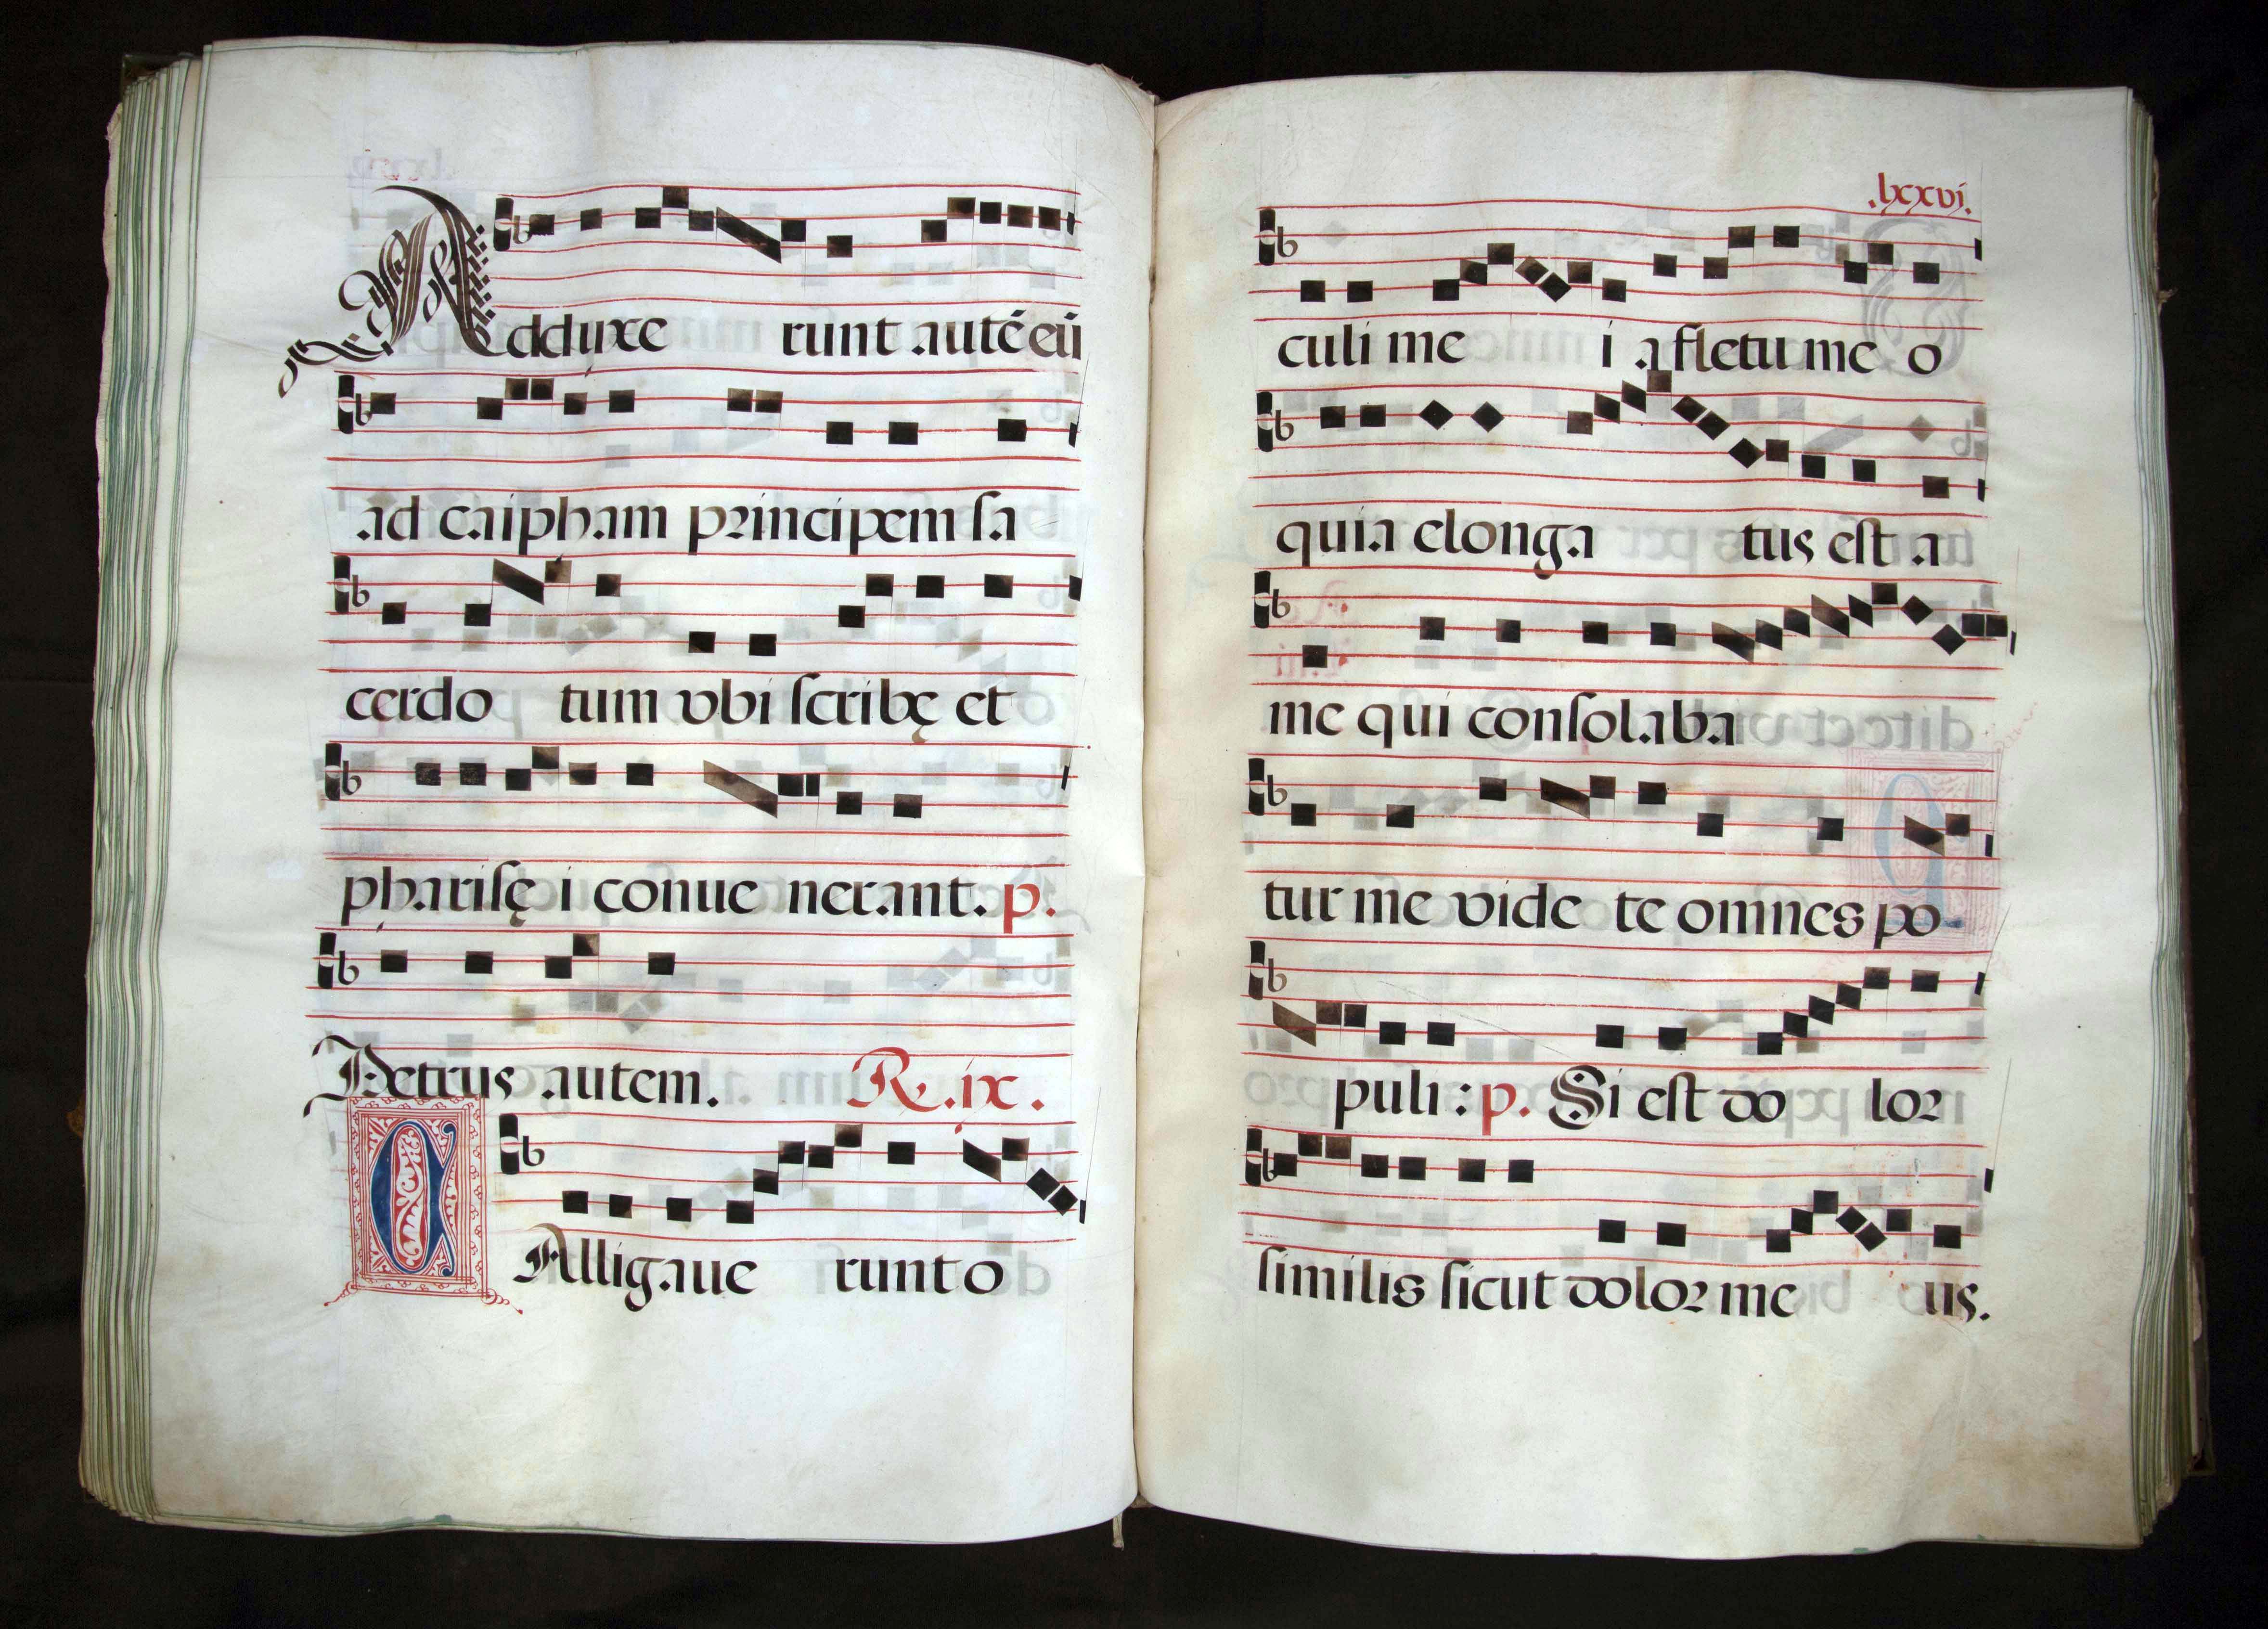 Adduxe runt autē eū
ad caipham principem sa
cerdo tum vbi scribę et
pharisę i conue nerant. p.
Petrus autem. R. ix.
C Alligaue runt o
.lxxvi.
culi me i a fletu me o
quia elonga tus est a
me qui consolaba
tur me vide te omnes po
puli : p. Si est do lor
similis sicut dolor me us.